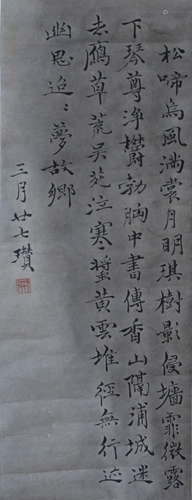 松啼烏風滿裳月明琪樹影侵墻霏微露
下琴尊淨欝勃胸中書傳香山隔浦城迷
去鴈草荒吳苑泣寒螿黄雲堆徑無行迹
幽思迢迢夢故鄉
三月廿七瓚